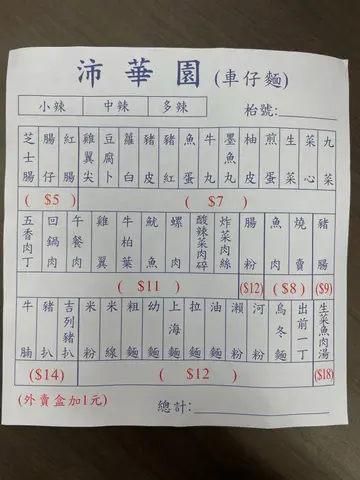 沛華園 (車仔麵)
小辣 中辣 多辣 枱號:
芝士腸
腸仔
紅腸
雞翼尖
豆腐卜
蘿白
豬皮
豬紅
魚蛋
牛丸
墨魚丸
柚皮
煎蛋
生菜
菜心
丸菜
( $5 ) ( $7 )
五香肉丁
回鍋肉
午餐肉
雞翼
牛柏葉
魷魚
螺肉
酸辣菜肉碎
炸菜肉絲
腸粉
魚肉
燒賣
豬腸
( $11 ) ($12) ($8) ($9)
牛腩
豬扒
吉列豬扒
米粉
米線
粗麵
幼麵
上海麵
拉麵
油麵
瀨粉
河粉
烏冬麵
出前一丁
生菜魚肉湯
($14) ( $12 ) ($18)
(外賣盒加1元) 總計: